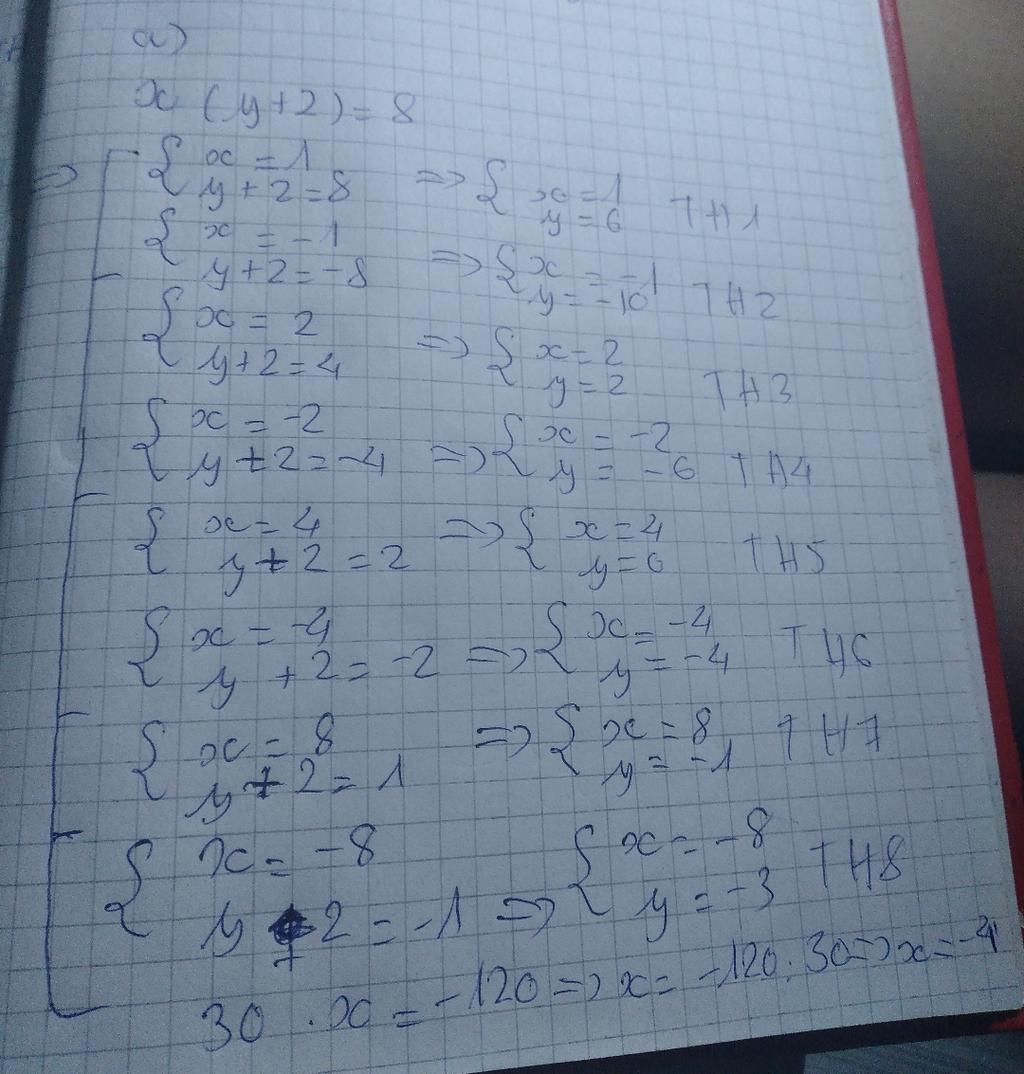 a)
x (y+2) = 8
⇒ [ { x = 1
y + 2 = 8 ⇒ { x = 1
y = 6 TH1
{ x = -1
y + 2 = -8 ⇒ { x = -1
y = -10 TH2
{ x = 2
y + 2 = 4 ⇒ { x = 2
y = 2 TH3
{ x = -2
y + 2 = -4 ⇒ { x = -2
y = -6 TH4
{ x = 4
y + 2 = 2 ⇒ { x = 4
y = 0 TH5
{ x = -4
y + 2 = -2 ⇒ { x = -4
y = -4 TH6
{ x = 8
y + 2 = 1 ⇒ { x = 8
y = -1 TH7
{ x = -8
y + 2 = -1 ⇒ { x = -8
y = -3 TH8
30 . x = -120 ⇒ x = -120 : 30 ⇒ x = -4